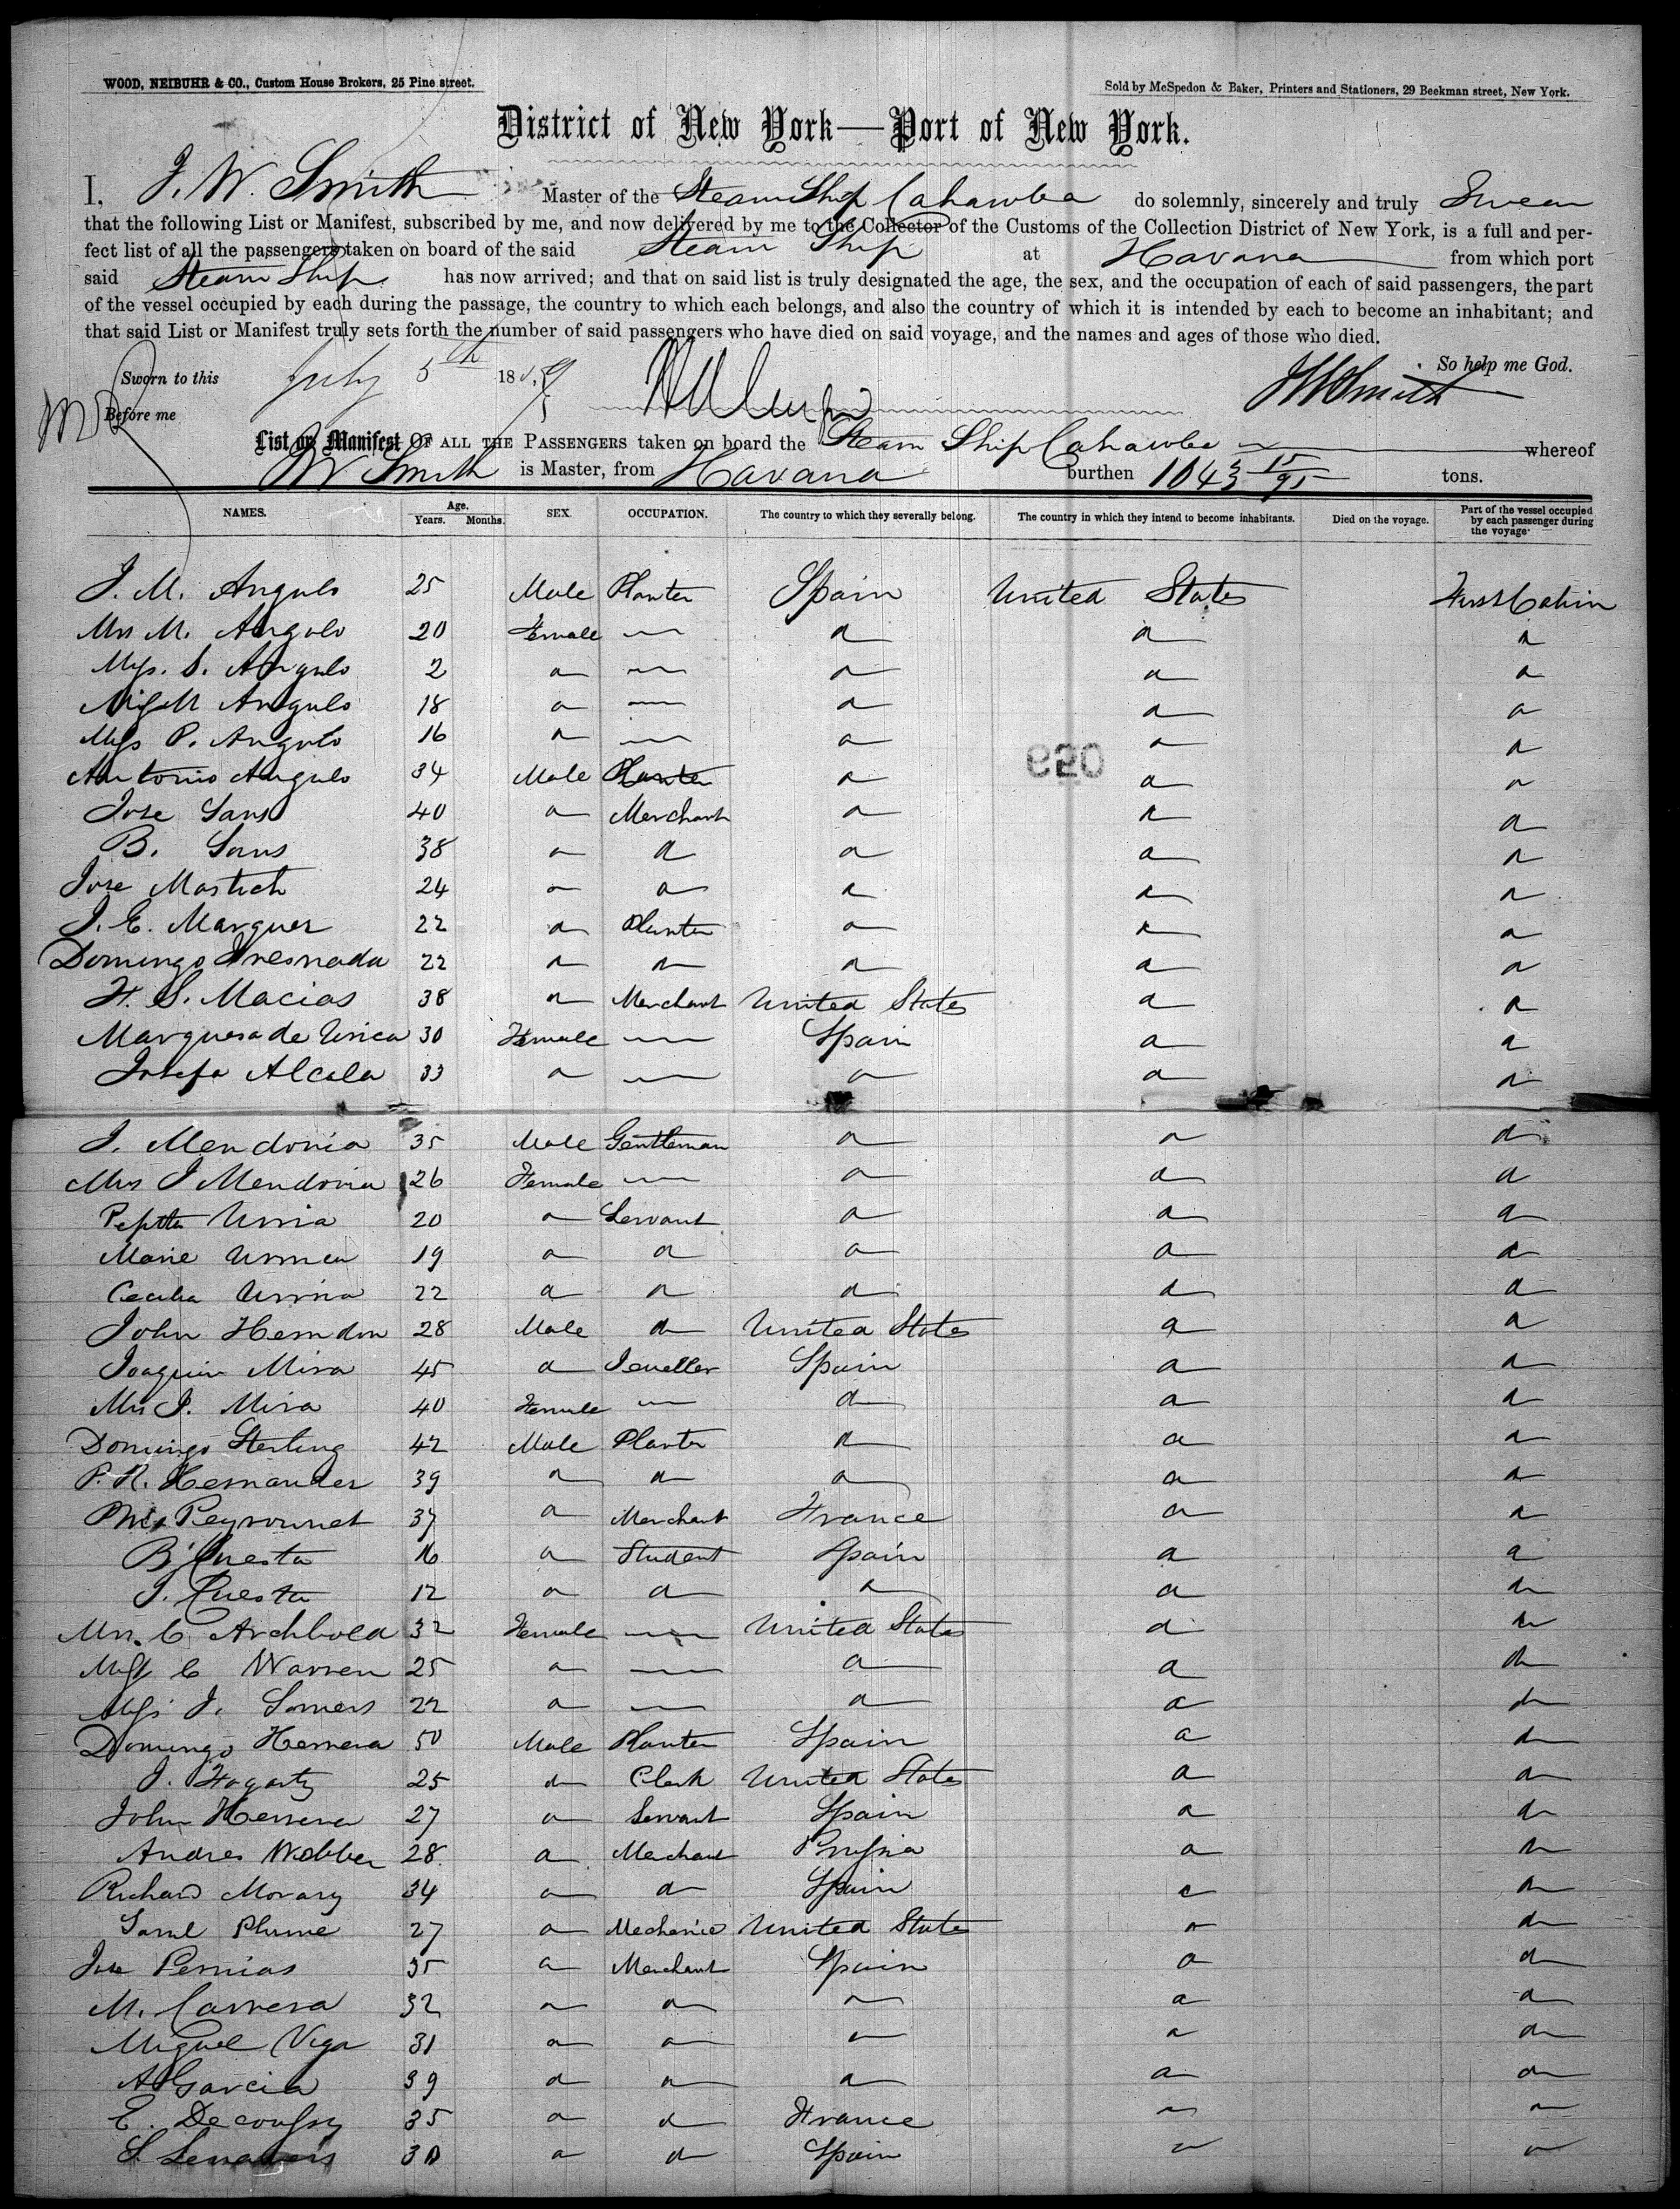 WOOD, NEIBUHR & CO., Custom House Brokers, 25 Pine street.
Sold by McSpedon & Baker, Printers and Stationers, 29 Beekman street, New York.
District of New York—Port of New York.
I, J. W. Smith Master of the Steam Ship Cahawba do solemnly, sincerely and truly Swear
that the following List or Manifest, subscribed by me, and now delivered by me to the Collector of the Customs of the Collection District of New York, is a full and per-
fect list of all the passengers taken on board of the said Steam Ship at Havana from which port
said Steam Ship has now arrived; and that on said list is truly designated the age, the sex, and the occupation of each of said passengers, the part
of the vessel occupied by each during the passage, the country to which each belongs, and also the country of which it is intended by each to become an inhabitant; and
that said List or Manifest truly sets forth the number of said passengers who have died on said voyage, and the names and ages of those who died.
So help me God.
Sworn to this July 5th 1859 JW Smith
Before me
List or Manifest OF ALL THE PASSENGERS taken on board the Steam Ship Cahawba whereof
JW Smith is Master, from Havana burthen 1043 15/95 tons.
NAMES. Age. Years. Months. SEX. OCCUPATION. The country to which they severally belong. The country in which they intend to become inhabitants. Died on the voyage. Part of the vessel occupied by each passenger during the voyage
J. M. Angulo 25 Male Planter Spain United States First Cabin
Mrs M. Angulo 20 Female — a a a
Miss. S. Angulo 2 a — a a a
Miss M Angulo 18 a — a a a
Miss P. Angulo 16 a — a a a
Antonio Angulo 34 Male Planter a a a
020
Jose Sans 40 a Merchant a a a
B. Sans 38 a a a a a
Jose Mastich 24 a a a a a
J. E. Marquez 22 a Planter a a a
Domingo 22 a a a a a
F. S. Macias 38 a Merchant United States a a
Marquesa de Urica 30 Female — Spain a a
Josefa Alcala 33 a — a a a
J. Mendoria 35 Male Gentleman a a a
Mrs J Mendoria 26 Female — a a a
20 a Servant a a a
Marie 19 a a a a a
Cecilia 22 a a a a a
John Herndon 28 Male a United States a a
Joaquin Mira 45 a Jeweller Spain a a
Mrs J. Mira 40 Female — a a a
Domingo Sterling 42 Male Planter a a a
P. R. Hernandez 39 a a a a a
Peyrounet 37 a Merchant France a a
B. Cuesta 16 a Student Spain a a
J. Cuesta 12 a a a a a
Mrs. C Archbold 32 Female — United States a a
Miss C Warren 25 a — a a a
Miss J. Somers 22 a — a a a
Domingo Herrera 50 Male Planter Spain a a
J. Fogarty 25 a Clerk United States a a
John Herrera 27 a Servant Spain a a
Andres Webber 28 a Merchant Prussia a a
Richard Morary 34 a a Spain a a
Saml Plume 27 a Mechanic United States a a
Jose Pernias 35 a Merchant Spain a a
M. Carrera 32 a a a a a
Miguel Vega 31 a a a a a
A Garcia 39 a a a a a
E. 35 a a France a a
S. 30 a a Spain a a